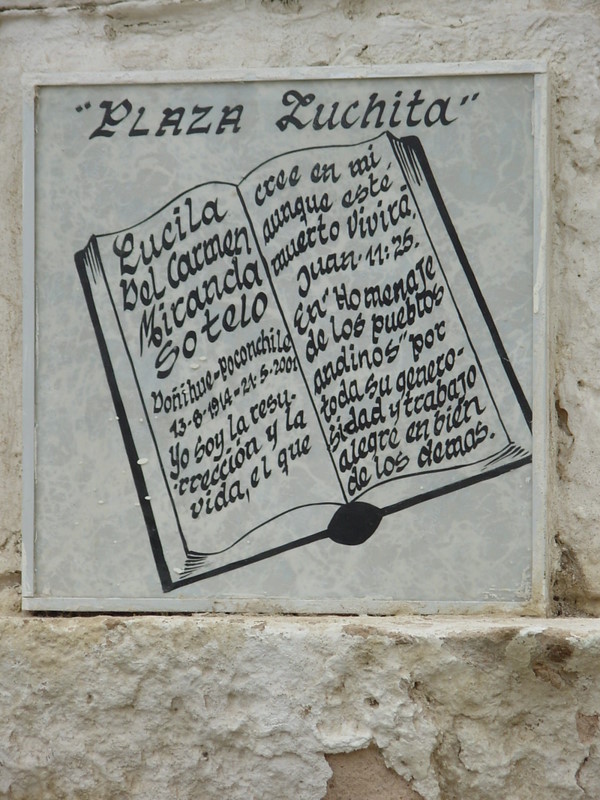 "PLAZA Luchita"
Lucila
Del Carmen
Miranda
Sotelo
Doñihue-Poconchile
13-8-1914-21-5-2001
Yo soy la resu-
rrección y la
vida, el que
cree en mi
aunque esté
muerto Vivirá,
Juan-11:25.
En "Homenaje
de los pueblos
andinos" por
toda su genero-
sidad y trabajo
alegre en bien
de los demas.